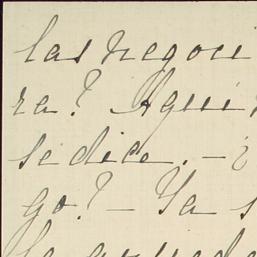 las negoci
ra? Aqui
se dice. — ¿
go? — Ya s